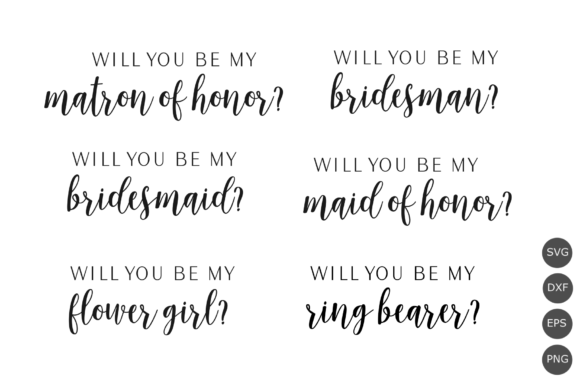 WILL YOU BE MY
matron of honor?
WILL YOU BE MY
bridesman?
WILL YOU BE MY
bridesmaid?
WILL YOU BE MY
maid of honor?
WILL YOU BE MY
flower girl?
WILL YOU BE MY
ring bearer?
SVG
DXF
EPS
PNG